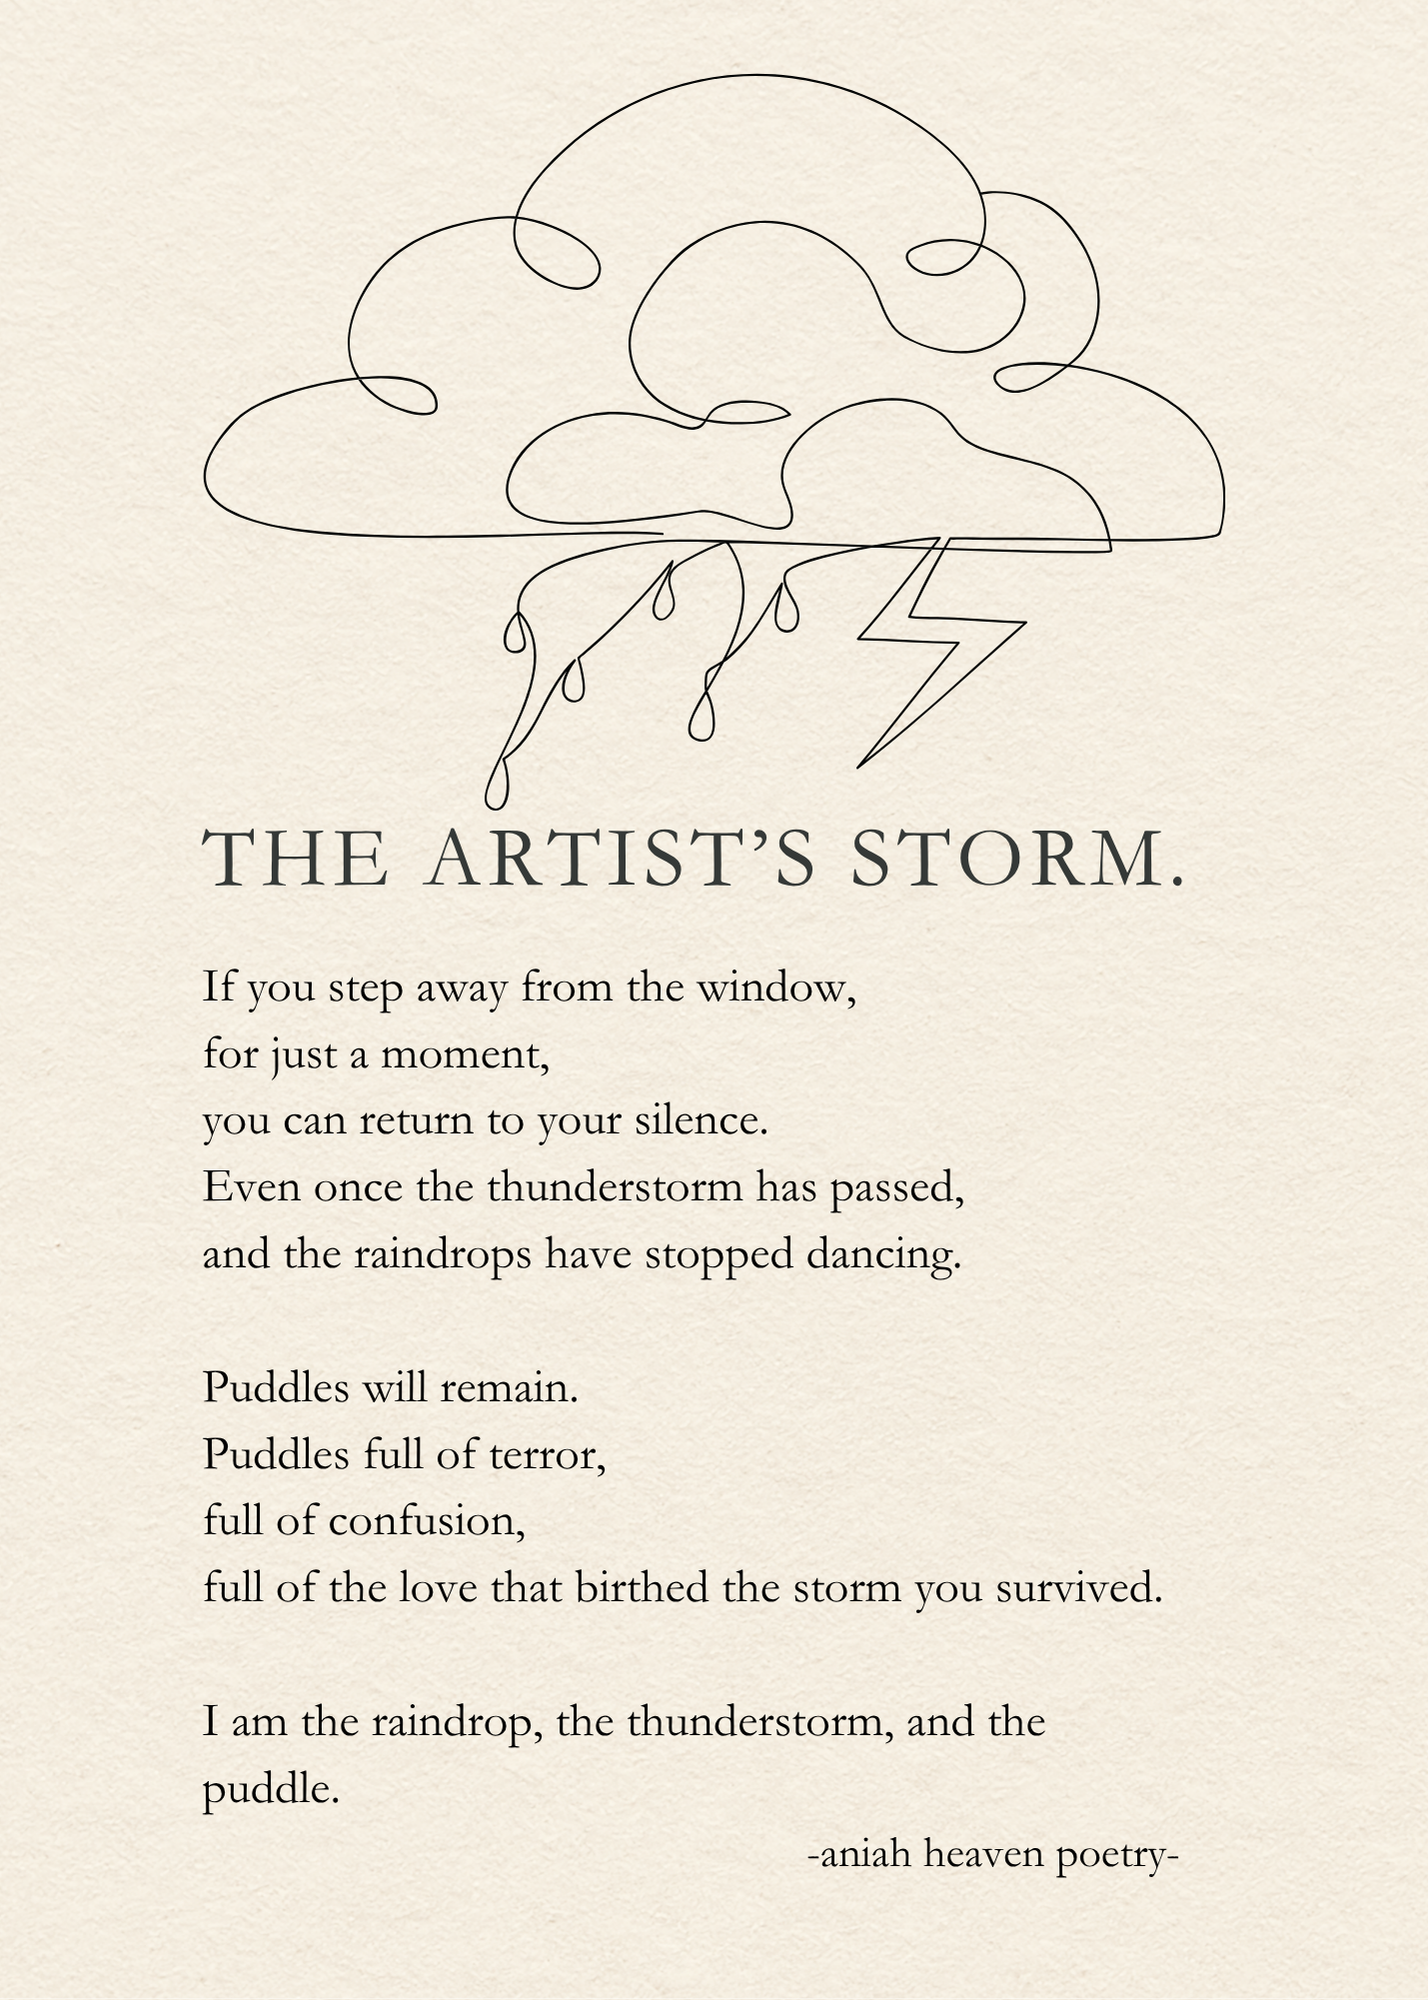 THE ARTIST’S STORM.
If you step away from the window,
for just a moment,
you can return to your silence.
Even once the thunderstorm has passed,
and the raindrops have stopped dancing.
Puddles will remain.
Puddles full of terror,
full of confusion,
full of the love that birthed the storm you survived.
I am the raindrop, the thunderstorm, and the
puddle.
-aniah heaven poetry-